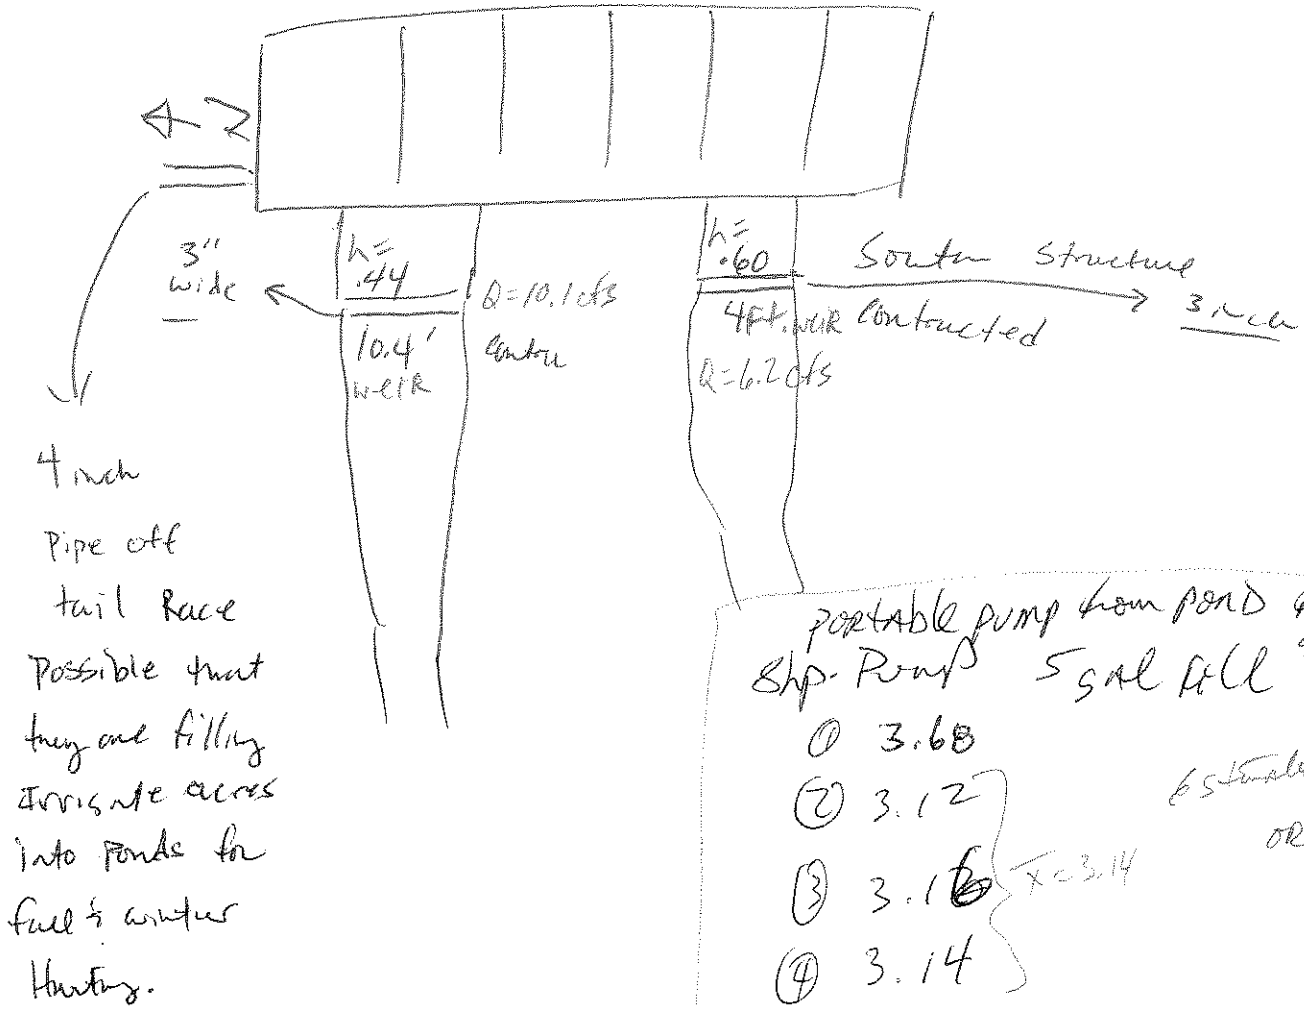 h=
.44
3"
wide
10.4'
weir
Q=10.1 cfs
h=
.60
4 Ft. weir
Q=6.2 cfs
Structure
Contracted
3 inch
4 inch
Pipe off
tail Race
Possible that
they are filling
Irrigate acres
into Ponds for
fall & winter
Hunting.
PORTAble pump from PonD
8hp. Pump 5 gAL fill
① 3.68
② 3.12
③ 3.16
④ 3.14
x̄=3.14
OR